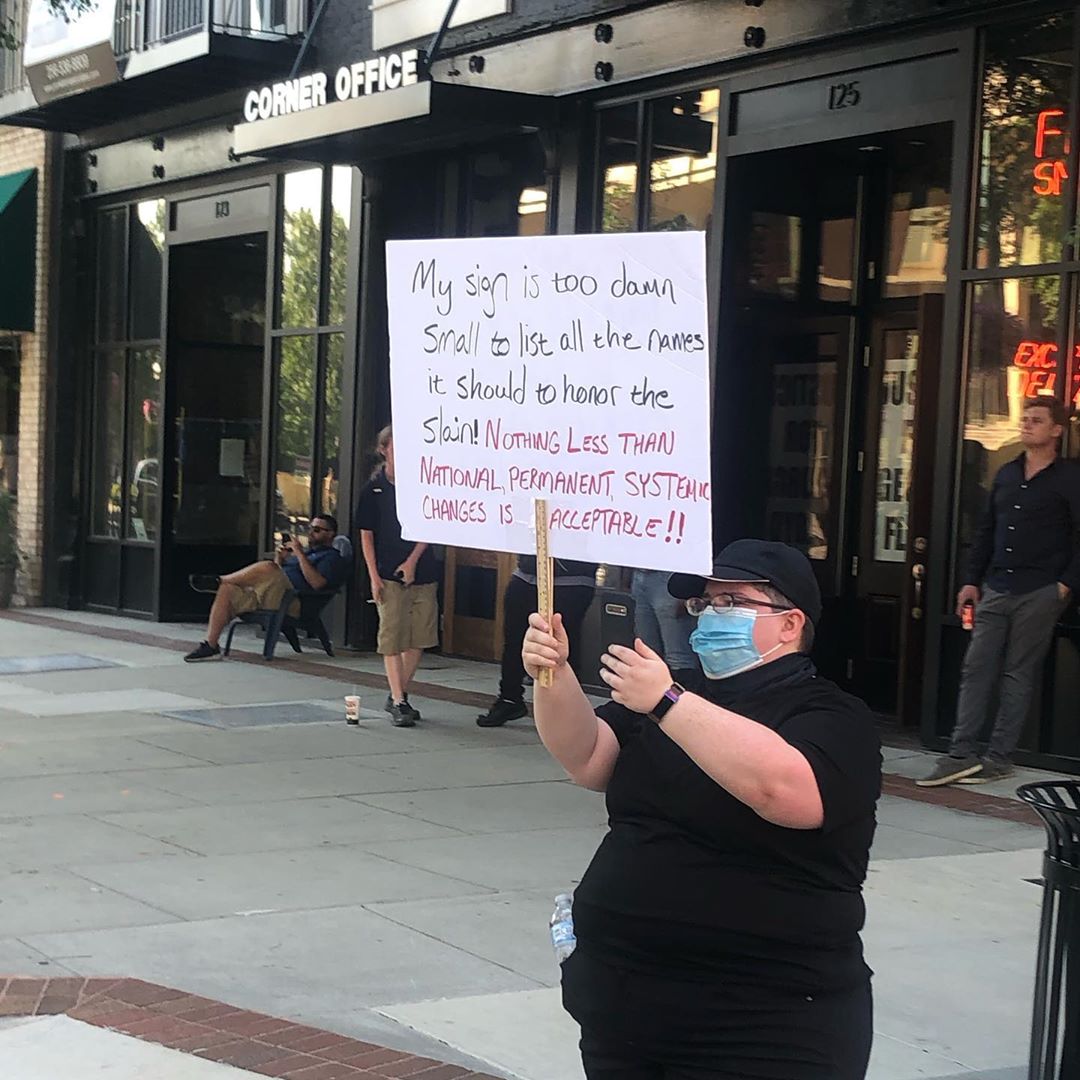 CORNER OFFICE
113
125
My sign is too damn
small to list all the names
it should to honor the
slain! NOTHING LESS THAN
NATIONAL, PERMANENT, SYSTEMIC
CHANGES IS ACCEPTABLE!!